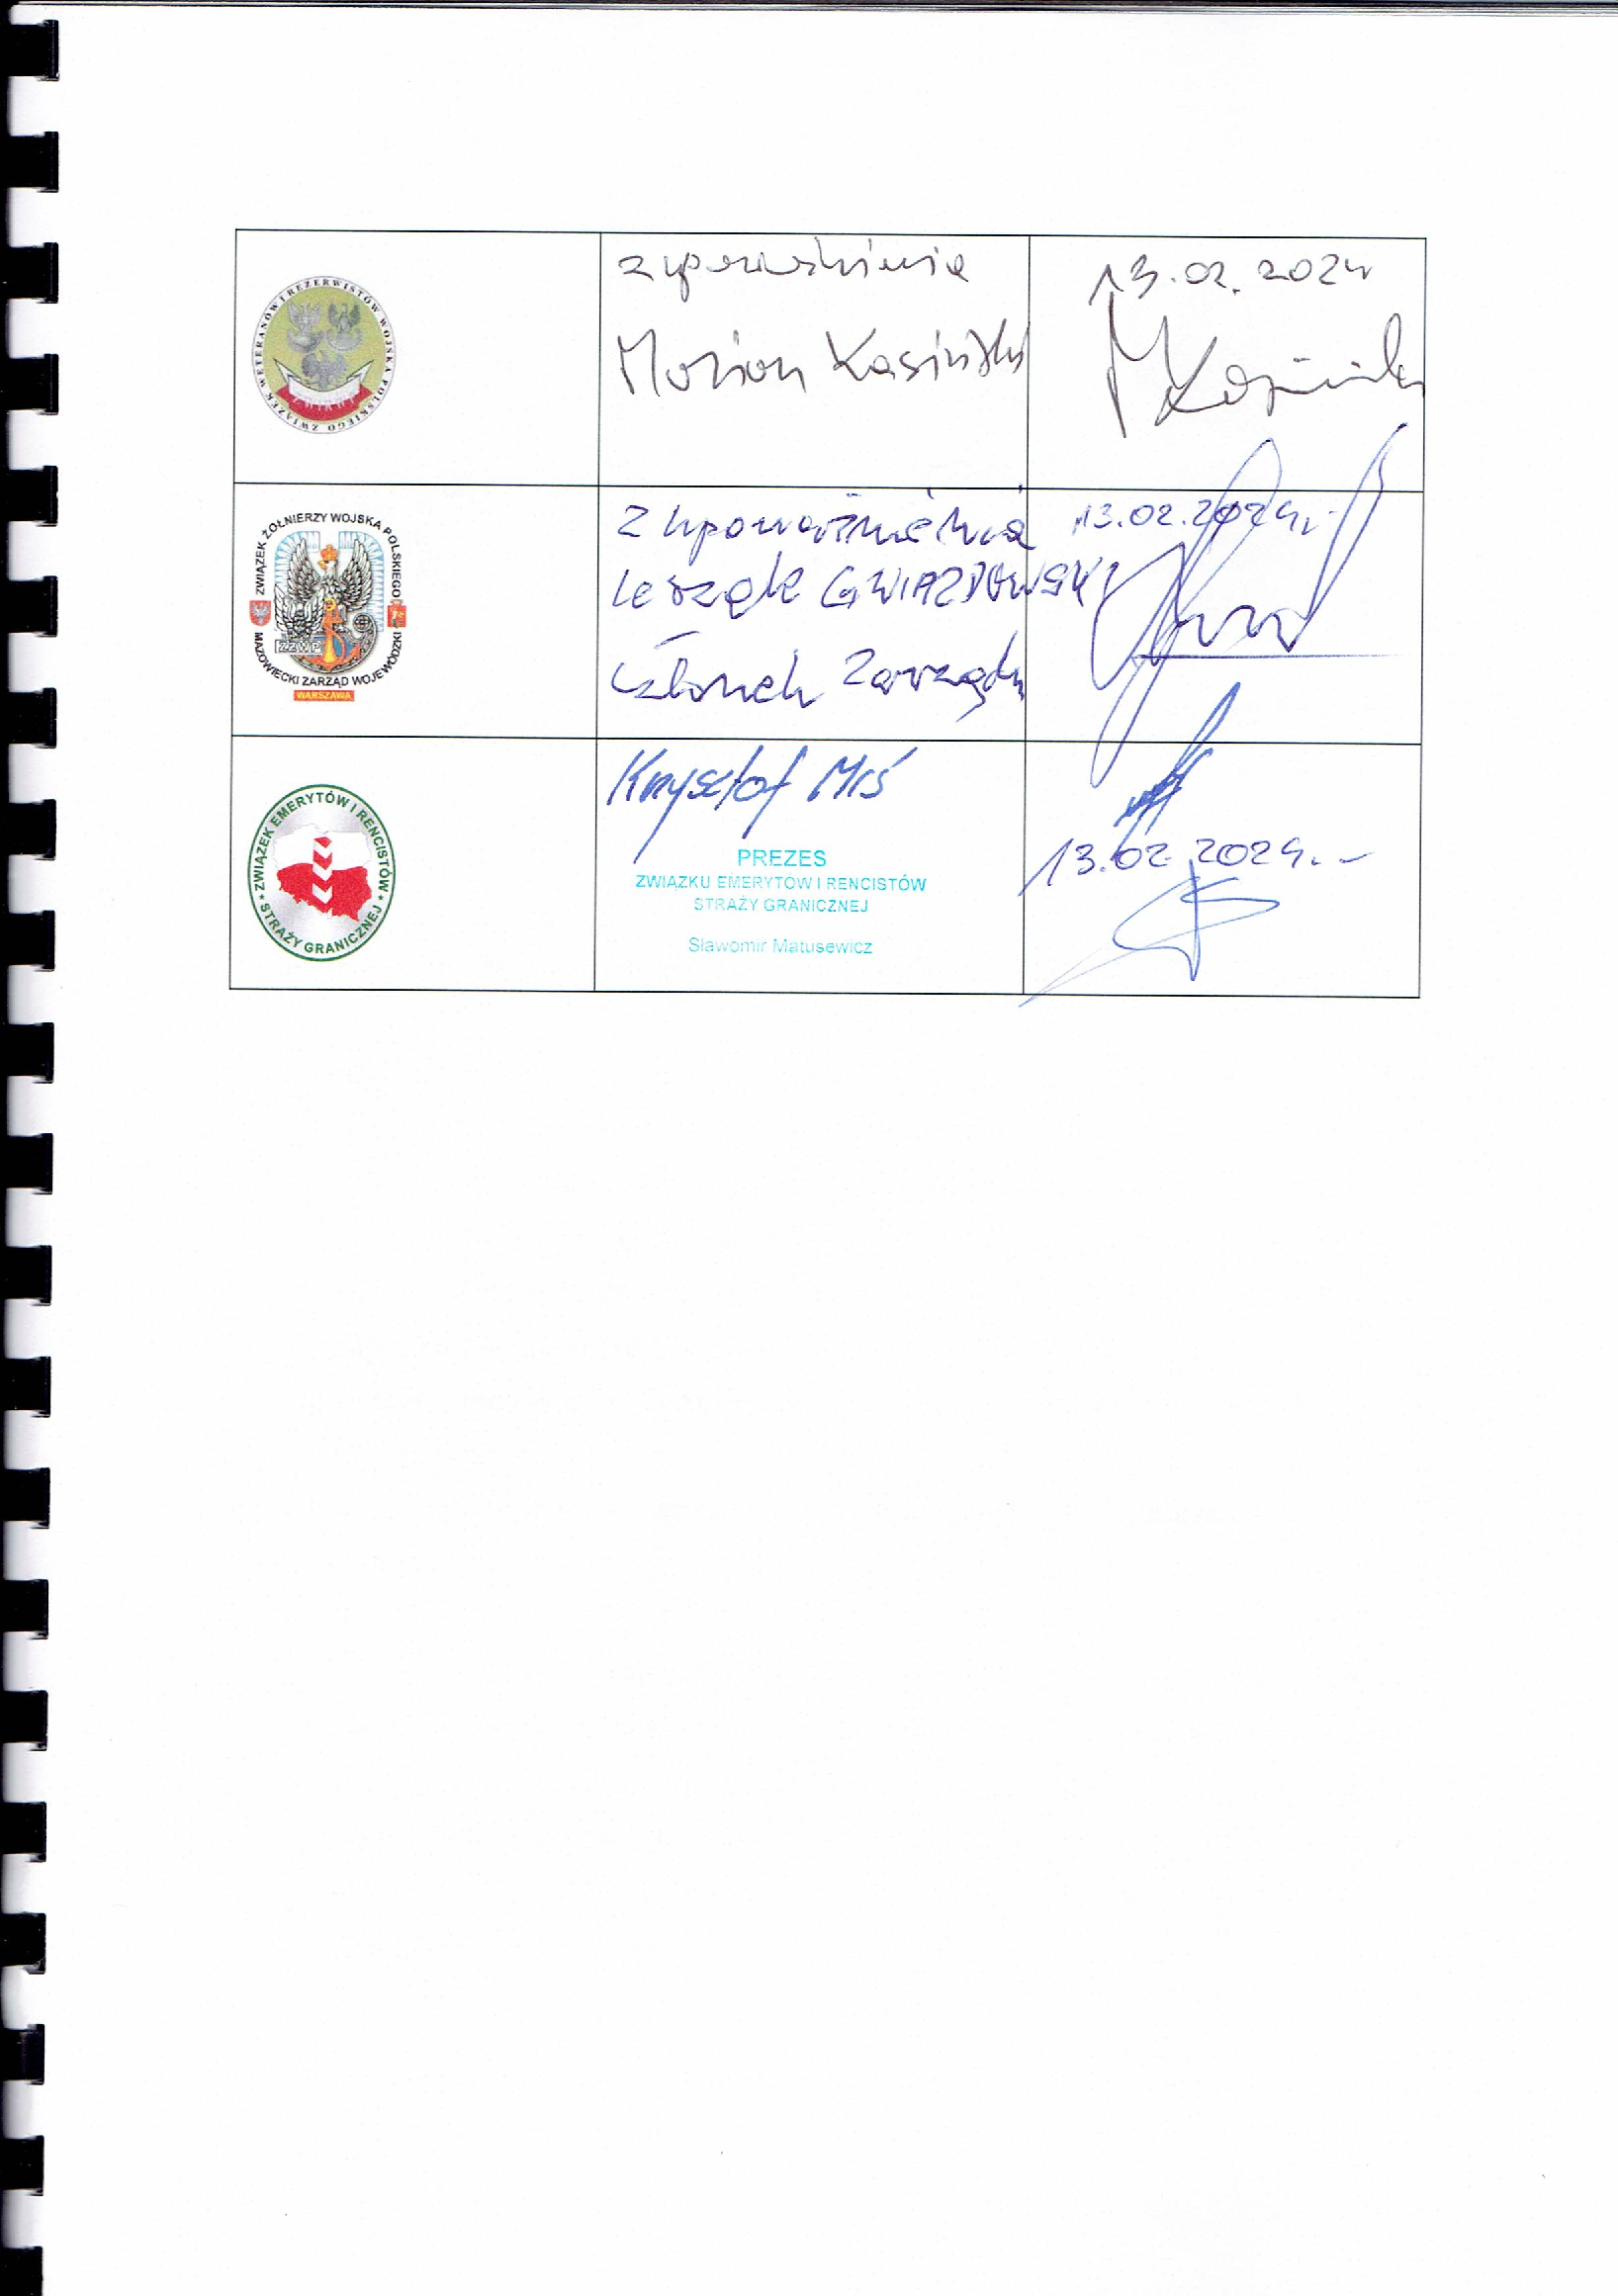 ZWIĄZEK WETERANÓW I REZERWISTÓW WOJSKA POLSKIEGO
Marian Kasiński
13.02.2024
ZWIĄZEK ŻOŁNIERZY WOJSKA POLSKIEGO
MAZOWIECKI ZARZĄD WOJEWÓDZKI
ZŻWP
WARSZAWA
z upoważnienia
Leszek GWIAZDOWSKI
Członek Zarządu
13.02.2024r.
ZWIĄZEK EMERYTÓW I RENCISTÓW
STRAŻY GRANICZNEJ
Krzysztof Miś
PREZES
ZWIĄZKU EMERYTÓW I RENCISTÓW
STRAŻY GRANICZNEJ
Sławomir Matusewicz
13.02.2024.